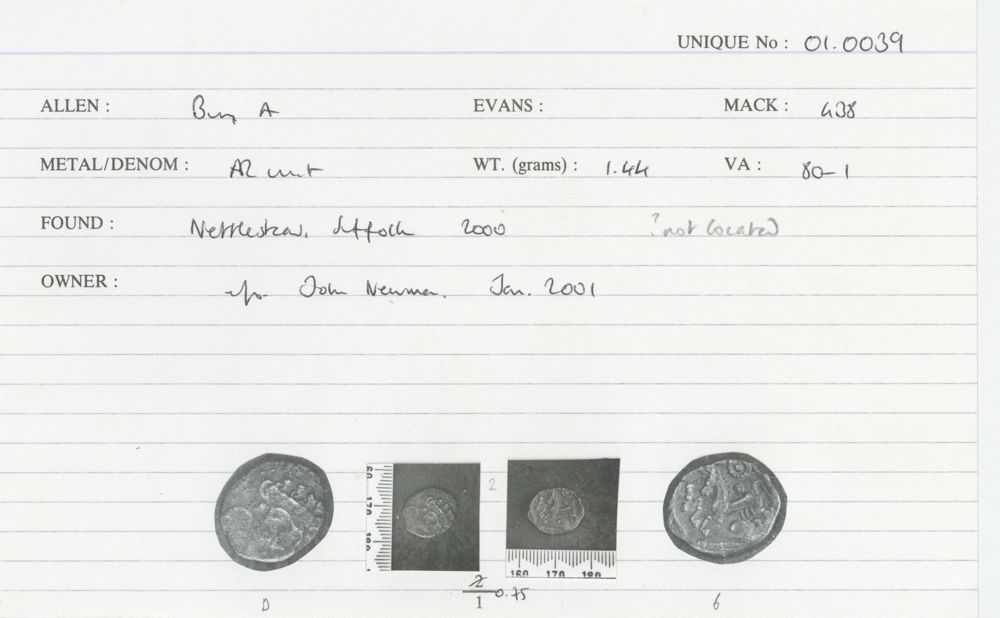 UNIQUE No : 01.0039
ALLEN : Bury A EVANS : MACK : 438
METAL/DENOM : AR unit WT. (grams) : 1.44 VA : 80-1
FOUND : Nettlestead, Suffolk 2000 ? not located
OWNER : John Newman. Jan. 2001
2
160 170 180
160 170 180
2 0.75
1
6